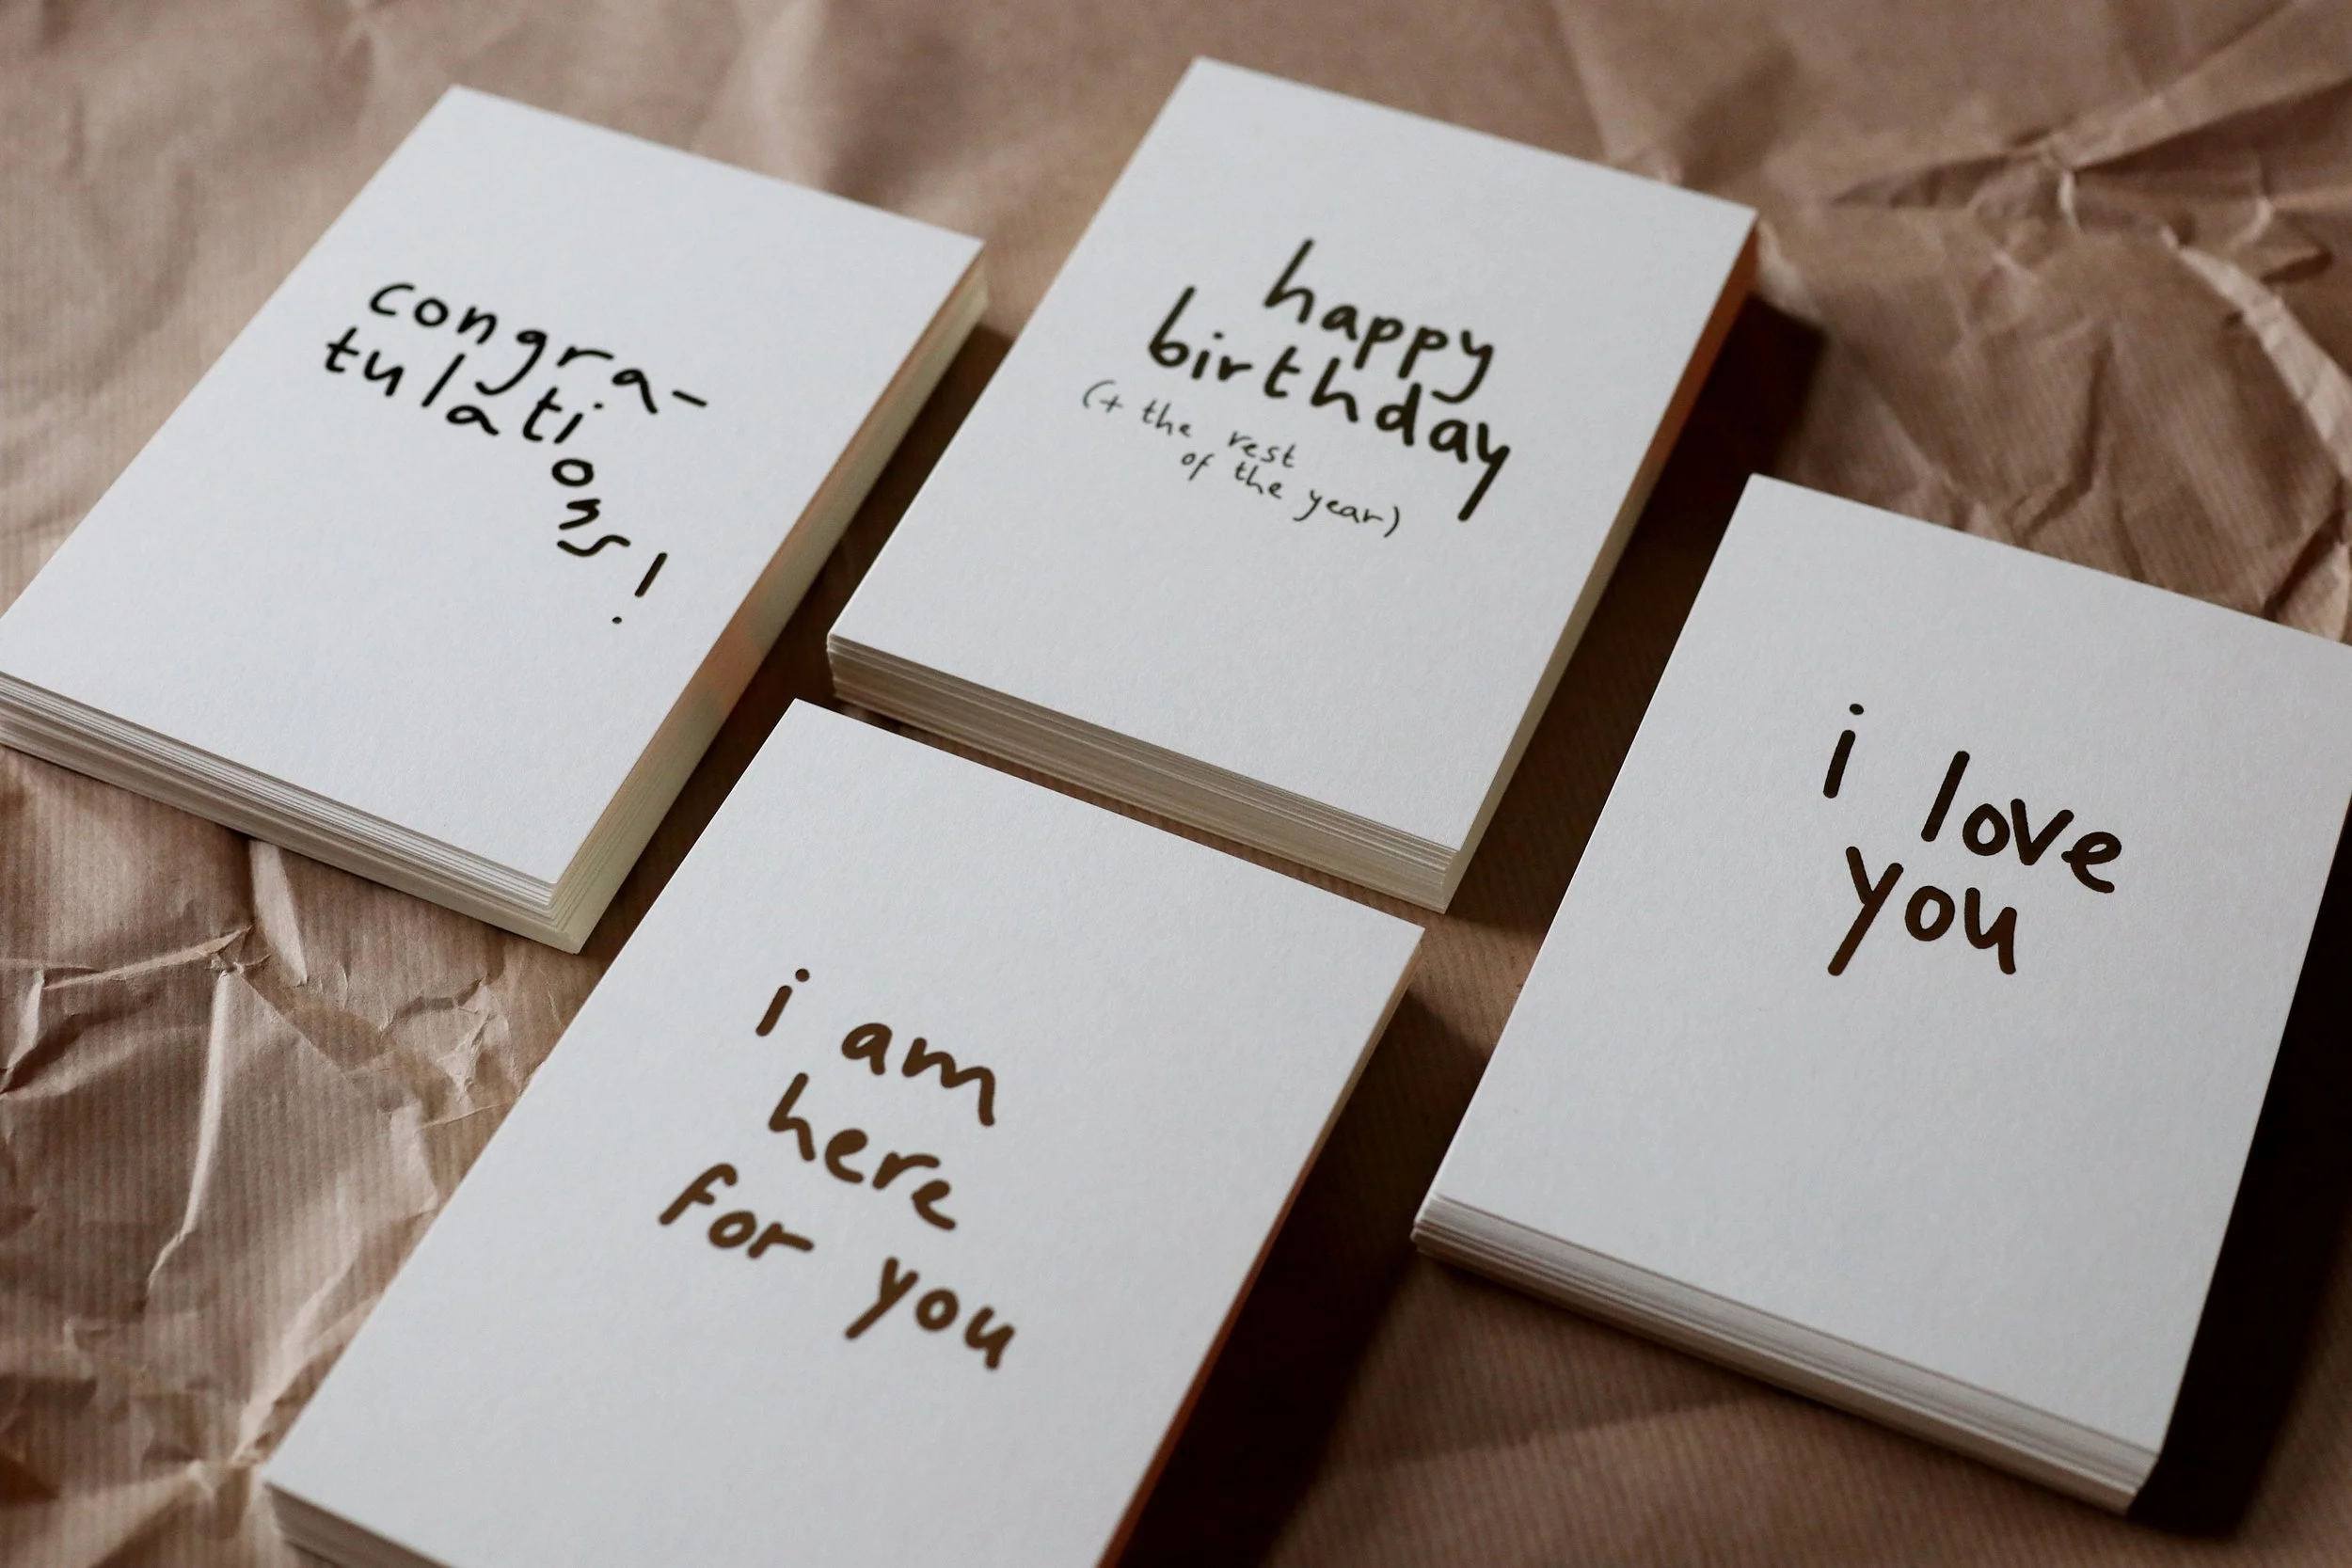 congra-
tulations!
happy
birthday
(+ the rest
of the year)
i love
you
i am
here
for you